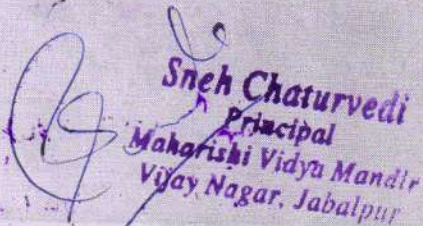 Sneh Chaturvedi
Principal
Maharishi Vidya Mandir
Vijay Nagar, Jabalpur